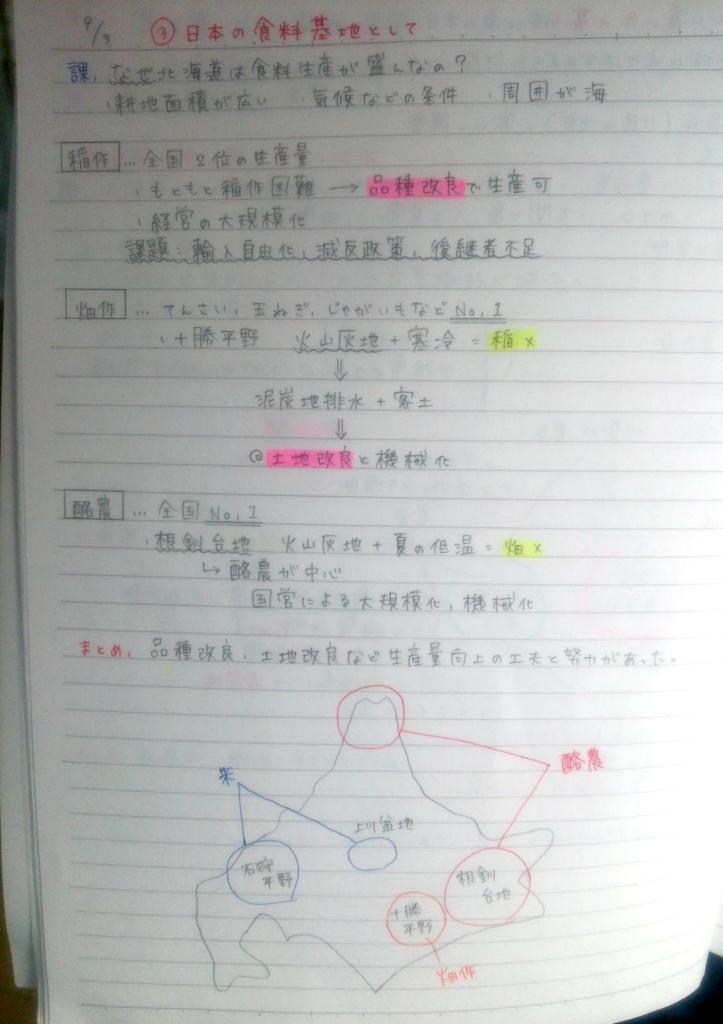 9/3 ③ 日本の食料基地として
課. なぜ北海道は食料生産が盛んなの？
・耕地面積が広い ・気候などの条件 ・周囲が海
稲作 … 全国2位の生産量
・もともと稲作困難 → 品種改良で生産可
・経営の大規模化
課題：輸入自由化、減反政策、後継者不足
畑作 … てんさい、玉ねぎ、じゃがいもなど No.1
・十勝平野 火山灰地 + 寒冷 = 稲×
⇓
泥炭地排水 + 客土
⇓
◎土地改良と機械化
酪農 … 全国 No.1
・根釧台地 火山灰地 + 夏の低温 = 畑×
↳ 酪農が中心
国営による大規模化、機械化
まとめ. 品種改良、土地改良など生産量向上の工夫と努力があった。
酪農
米
上川盆地
石狩
平野
根釧
台地
十勝
平野
畑作